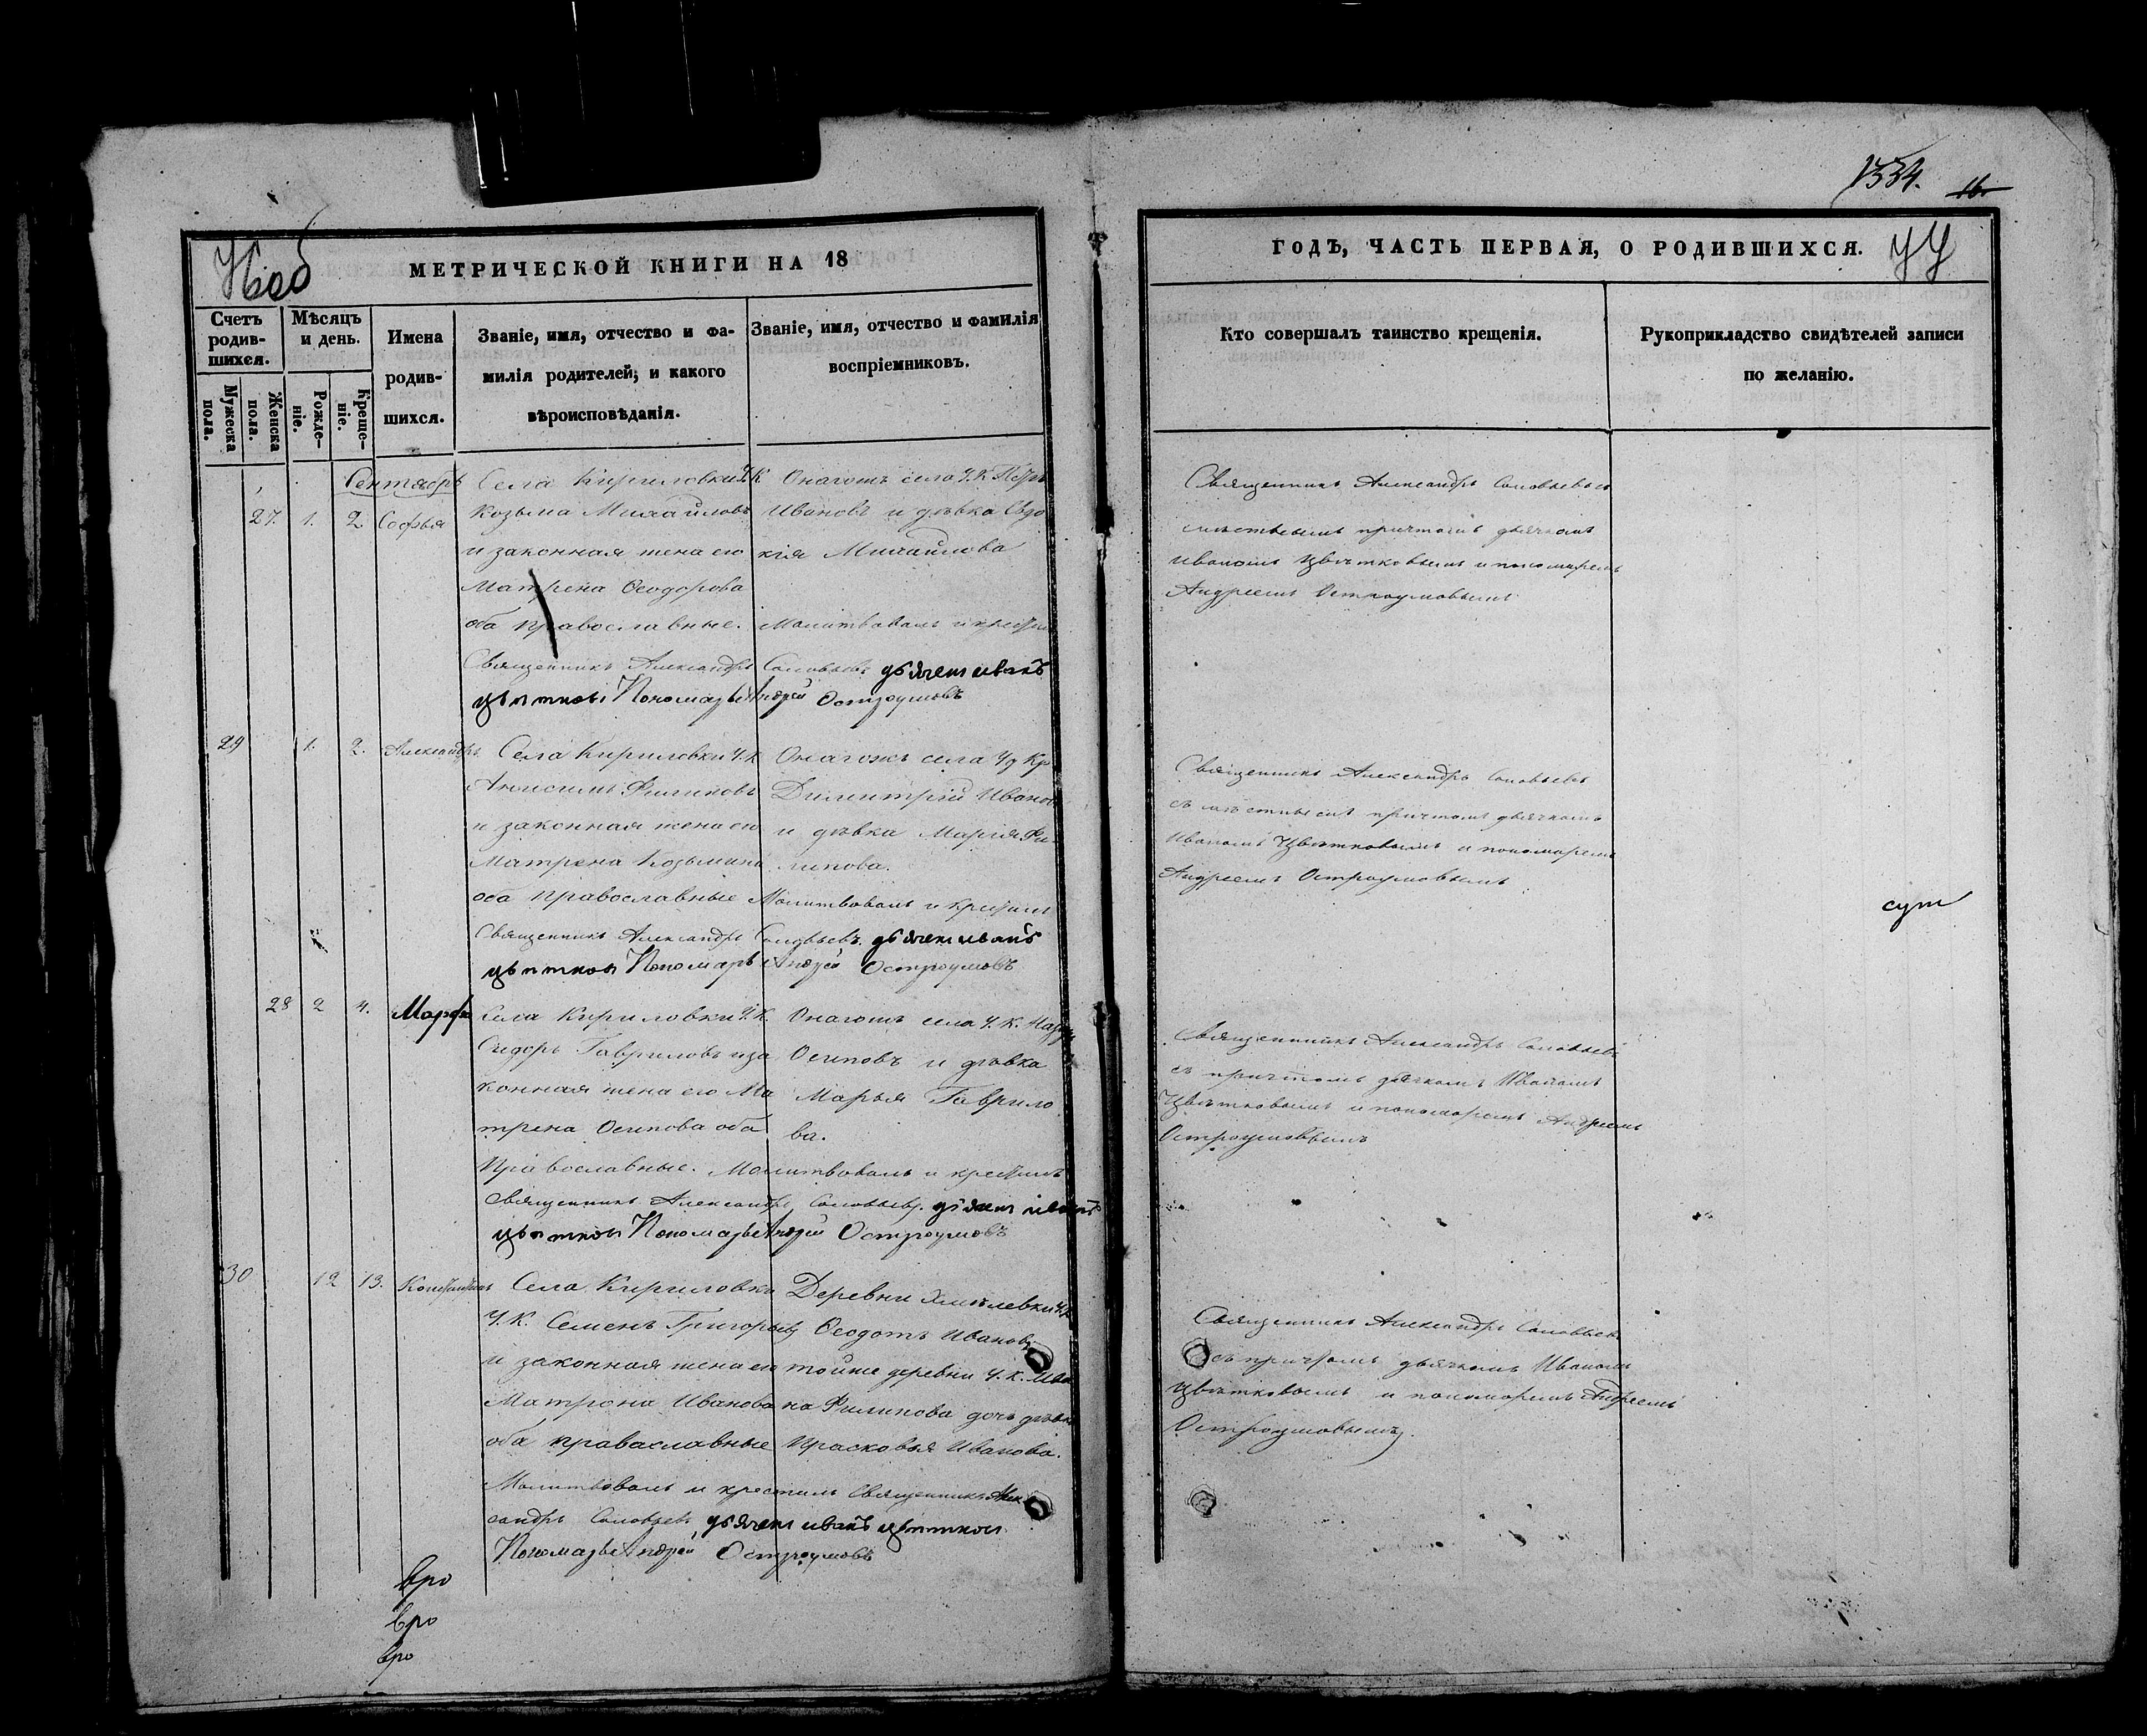 1334. 16.
МЕТРИЧЕСКОЙ КНИГИ НА 18
ГОДЪ, ЧАСТЬ ПЕРВАЯ, О РОДИВШИХСЯ.
Счетъ родив-шихся.
Мужеска пола.
Женска пола.
Мѣсяцъ и день.
Рожде-ніе.
Креще-ніе.
Имена родив-шихся.
Званіе, имя, отчество и фа-
милія родителей; и какого
вѣроисповѣданія.
Званіе, имя, отчество и фамилія
воспріемниковъ.
Кто совершалъ таинство крещенія.
Рукоприкладство свидѣтелей записи
по желанію.
Сентябрь
27. 1. 2 Софья
Села Кириловки У.К
Козьма Михайловъ
и законная жена его
Матрена Ѳеодорова
оба православные.
Онагожъ села У.К Петръ
Ивановъ и дѣвка Евдо
кія Михайлова
Молитвовалъ и крестилъ
Священникъ Александръ Соловьевъ дьячекъ иванъ
цветковъ Пономарь Андрей Остроумовъ
Священникъ Александръ Соловьевъ съ
мѣстнымъ причтомъ дьячкомъ
Иваномъ Цвѣтковымъ и пономаремъ
Андреемъ Остроумовымъ
29 1. 2. Александръ
Села Кириловки У.К
Анисимъ Филиповъ
и законная жена его
Матрена Козьмина
оба православные
Онагожъ села Уд Кр
Димитрій Ивановъ
и дѣвка Марія Фи-
липова.
Молитвовалъ и крестилъ
Священникъ Александръ Соловьевъ. дьячекъ иванъ
цветковъ Пономарь Андрей Остроумовъ
Священникъ Александръ Соловьевъ
съ мѣстнымъ причтомъ дьячкомъ
Иваномъ Цвѣтковымъ и пономаремъ
Андреемъ Остроумовымъ
28 2 4. Марфа
Села Кириловки У.К.
Сидоръ Гавриловъ и за
конная жена его Ма
трена Осипова оба
Православные. Молитвовалъ и крестилъ
Онагожъ села У.К.
Осиповъ и дѣвка
Марья Гаврило
ва.
Священникъ Александръ Соловьевъ. дьячекъ иванъ
цветковъ Пономарь Андрей Остроумовъ
Священникъ Александръ Соловьевъ
съ причтомъ дьячкомъ Иваномъ
Цвѣтковымъ и пономаремъ Андреемъ
Остроумовымъ
30 12 13. Константинъ
Села Кириловки
У.К. Семенъ Григорьевъ
и законная жена его
Матрона Иванова
оба православные
Деревни Хмѣлевки У.К
Ѳеодотъ Ивановъ
тойже деревни У.К. Ива
на Филипова дочь дѣвка
Прасковья Иванова.
Молитвовалъ и крестилъ Священникъ Алек
сандръ Соловьевъ дьячекъ иванъ цветковъ
Пономарь Андрей Остроумовъ
Священникъ Александръ Соловьевъ
съ причтомъ дьячкомъ Иваномъ
Цвѣтковымъ и пономаремъ Андреемъ
Остроумовымъ.
вро
вро
вро